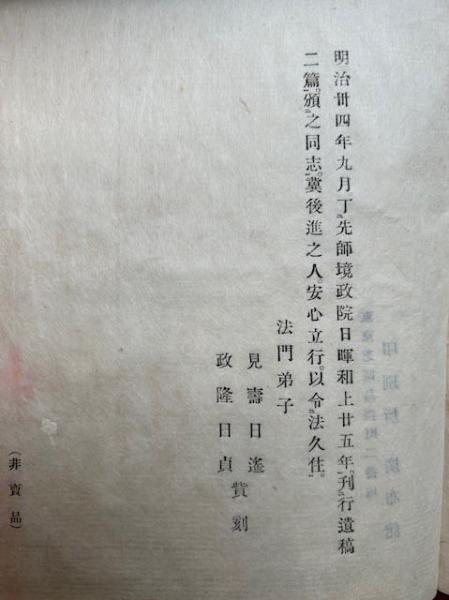 明治卅四年九月丁先師境政院日暉和上廿五年刊行遺稿
二篇頒之同志冀後進之人安心立行以令法久住
法門弟子
見壽日遙
政隆日貞
貲刻
(非賣品)